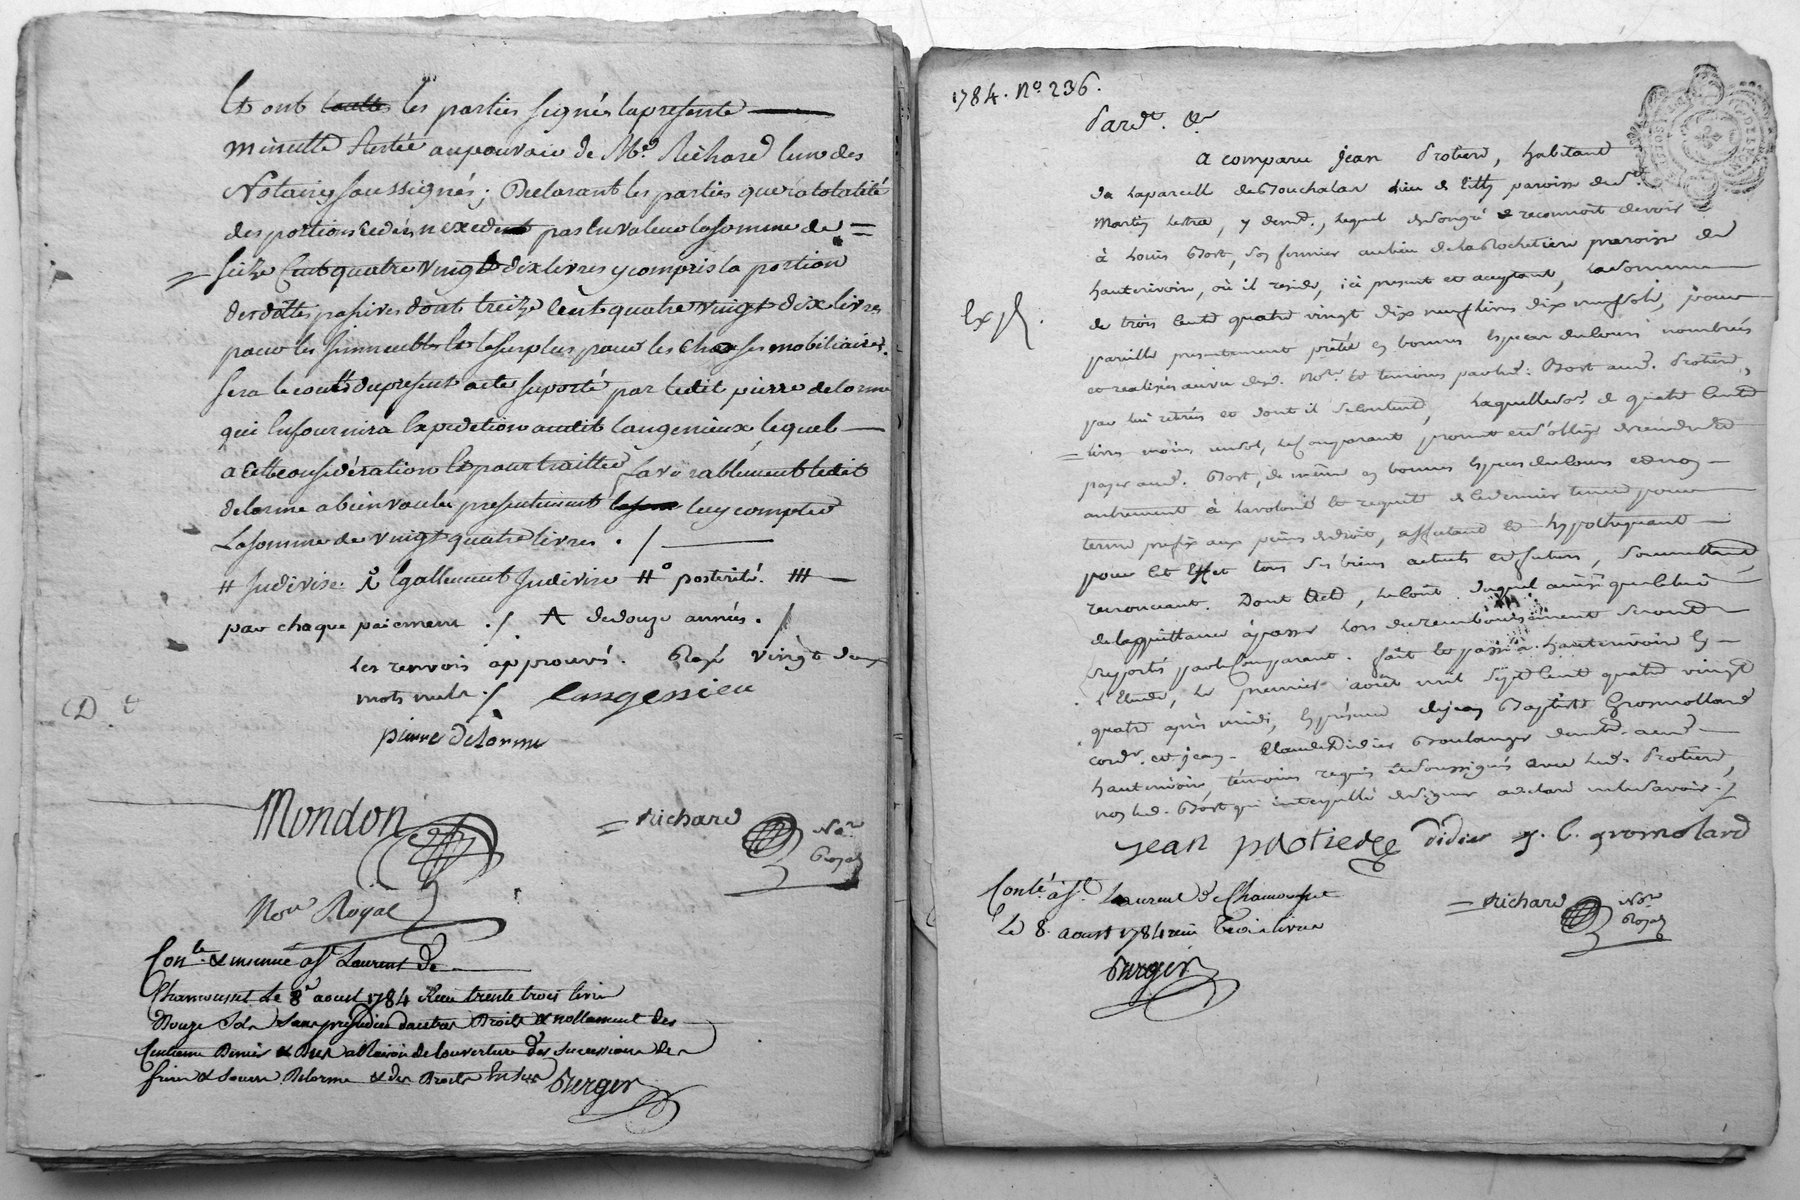 Et ont toutes les parties signés la presente
minutte restée au pouvoir de Me Richard lun des
Notaires soussignés ; Declarant les parties que la totalité
des portions cedées n'exedent pas en valeur la somme de =
= seize Cent quatre vingt dix livres y compris la portion
des dettes passives dont treize Cent quatre vingt dix livres
pour les immeubles et le surplus pour les choses mobiliaires.
sera le coutt du present acte suporté par ledit pierre delorme
qui en fournira Expedition audit Langenieux, lequel
a cette considération et pour traitter favorablement ledit
delorme a bien voulu presentement luy compter
La somme de vingt quatre livres . /
# Indivise. Egallement Indivise #° posterité. ##
par chaque paiement ./ A de douze années. /
Les renvois approuvés. Rayé vingt deux
mots nuls ./ Langenieu
D. t
pierre delorme
Mondon
= Richard Nore Royal
Nore Royal
Conlé & insinué à St Laurent de
Chamousset Le 8e aoust 1784 Reçu trente trois livres
Douze sols sans prejudice dautres Droits & nottament des
Centieme Denier & Dus a Raison de louverture des successions de
frere & soeur Delorme & des Droits
Berger
1784. No. 236.
Pardt. &a
A comparu Jean Protiere, habitant
de la parcelle de Bouchalas lieu de paroisse de St
Martin Lestra, y demt., lequel de son gré reconnoit devoir
à Louis Bort, son fermier au lieu de la Rochetiere paroisse de
hauterivoire, où il reside, ici present et acceptant, la somme
Exp.
de trois Cents quatre vingt dix neuf livres dix neuf sols, pour
pareille presentement prêtée en bonnes especes du cours nombrées
et realisées au vu desd. Nore. et temoins par led. Bort aud. Protiere,
par lui retirées et dont il se contente, Laquelle so. de quatre Cents
= livres moins un sol, le Comparant promet et s'oblige de rendre et
payer aud. Bort, de même en bonnes especes du cours et non
autrement à la volonté et requette de ce dernier pour
terme prefix aux peines de droit, affectant et hypothequant
pour cet effet tous ses biens actuels et futurs, soumettant,
renonceant. Dont acte, le coût duquel ainsi que celui
de la quittance à passer lors du remboursement seront
suportés par le Comparant. fait et passé à hauterivoire En
l'Etude, le premier août mil sept Cent quatre vingt
quatre après midi, En présence de jean Baptiste Gromollard
cordr. et jean Claude Didier Boulanger demts. aud.
hauterivoire, témoins requis et soussignés avec led. Protiere,
non led. Bort qui interpellé de signer a declaré ne le savoir ./
jean protiere Didier j. b. gromolard
Conlé. à St. Laurent de Chamousset
Le 8. aoust 1784 reçu trois livres
= Richard Nore Royal
Berger